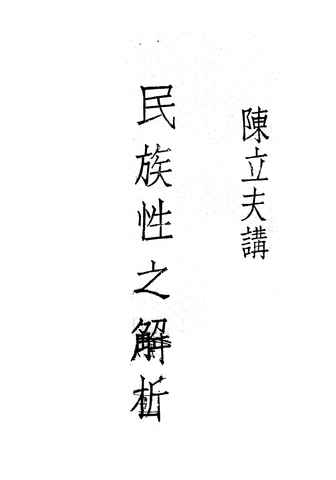 陳立夫講
民族性之解析